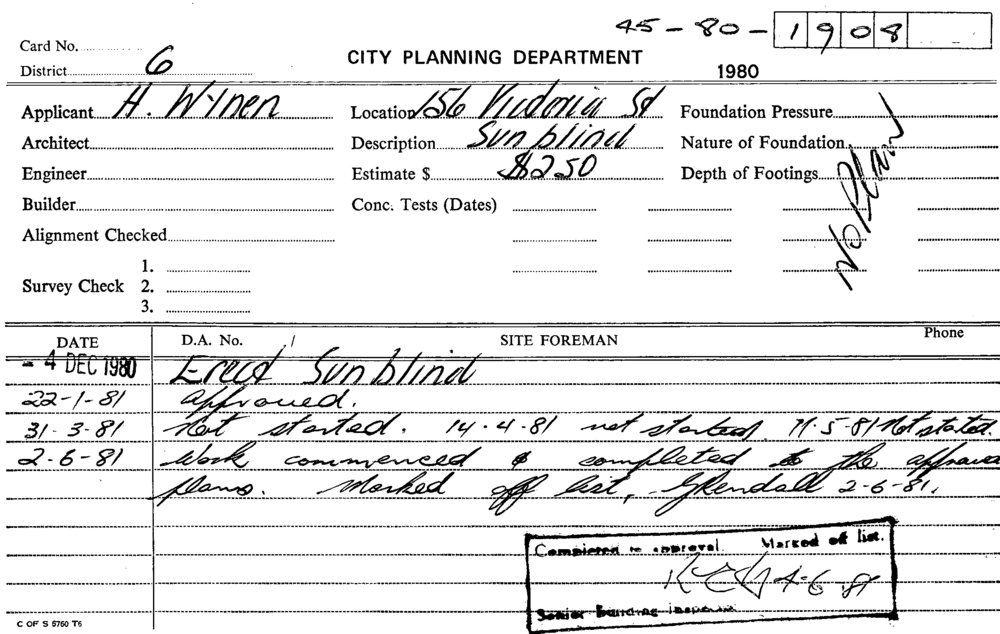 45-80-1908
Card No.
District 6
CITY PLANNING DEPARTMENT
1980
Applicant H. Wynen
Location 156 Victoria St
Foundation Pressure
Architect
Description Sunblind
Nature of Foundation
Engineer
Estimate $ $250
Depth of Footings
No Plan
Builder
Conc. Tests (Dates)
Alignment Checked
Survey Check
1.
2.
3.
DATE
D.A. No.
SITE FOREMAN
Phone
- 4 DEC 1980 Erect Sunblind
22-1-81 approved.
31-3-81 Not started. 14-4-81 not started. 11-5-81 Not started.
2-6-81 Work commenced & completed to the approved
plans. Marked off list, GKendall 2-6-81.
Completed to approval. Marked off list.
4-6-81
Senior Building Inspector
C OF S 5760 T6